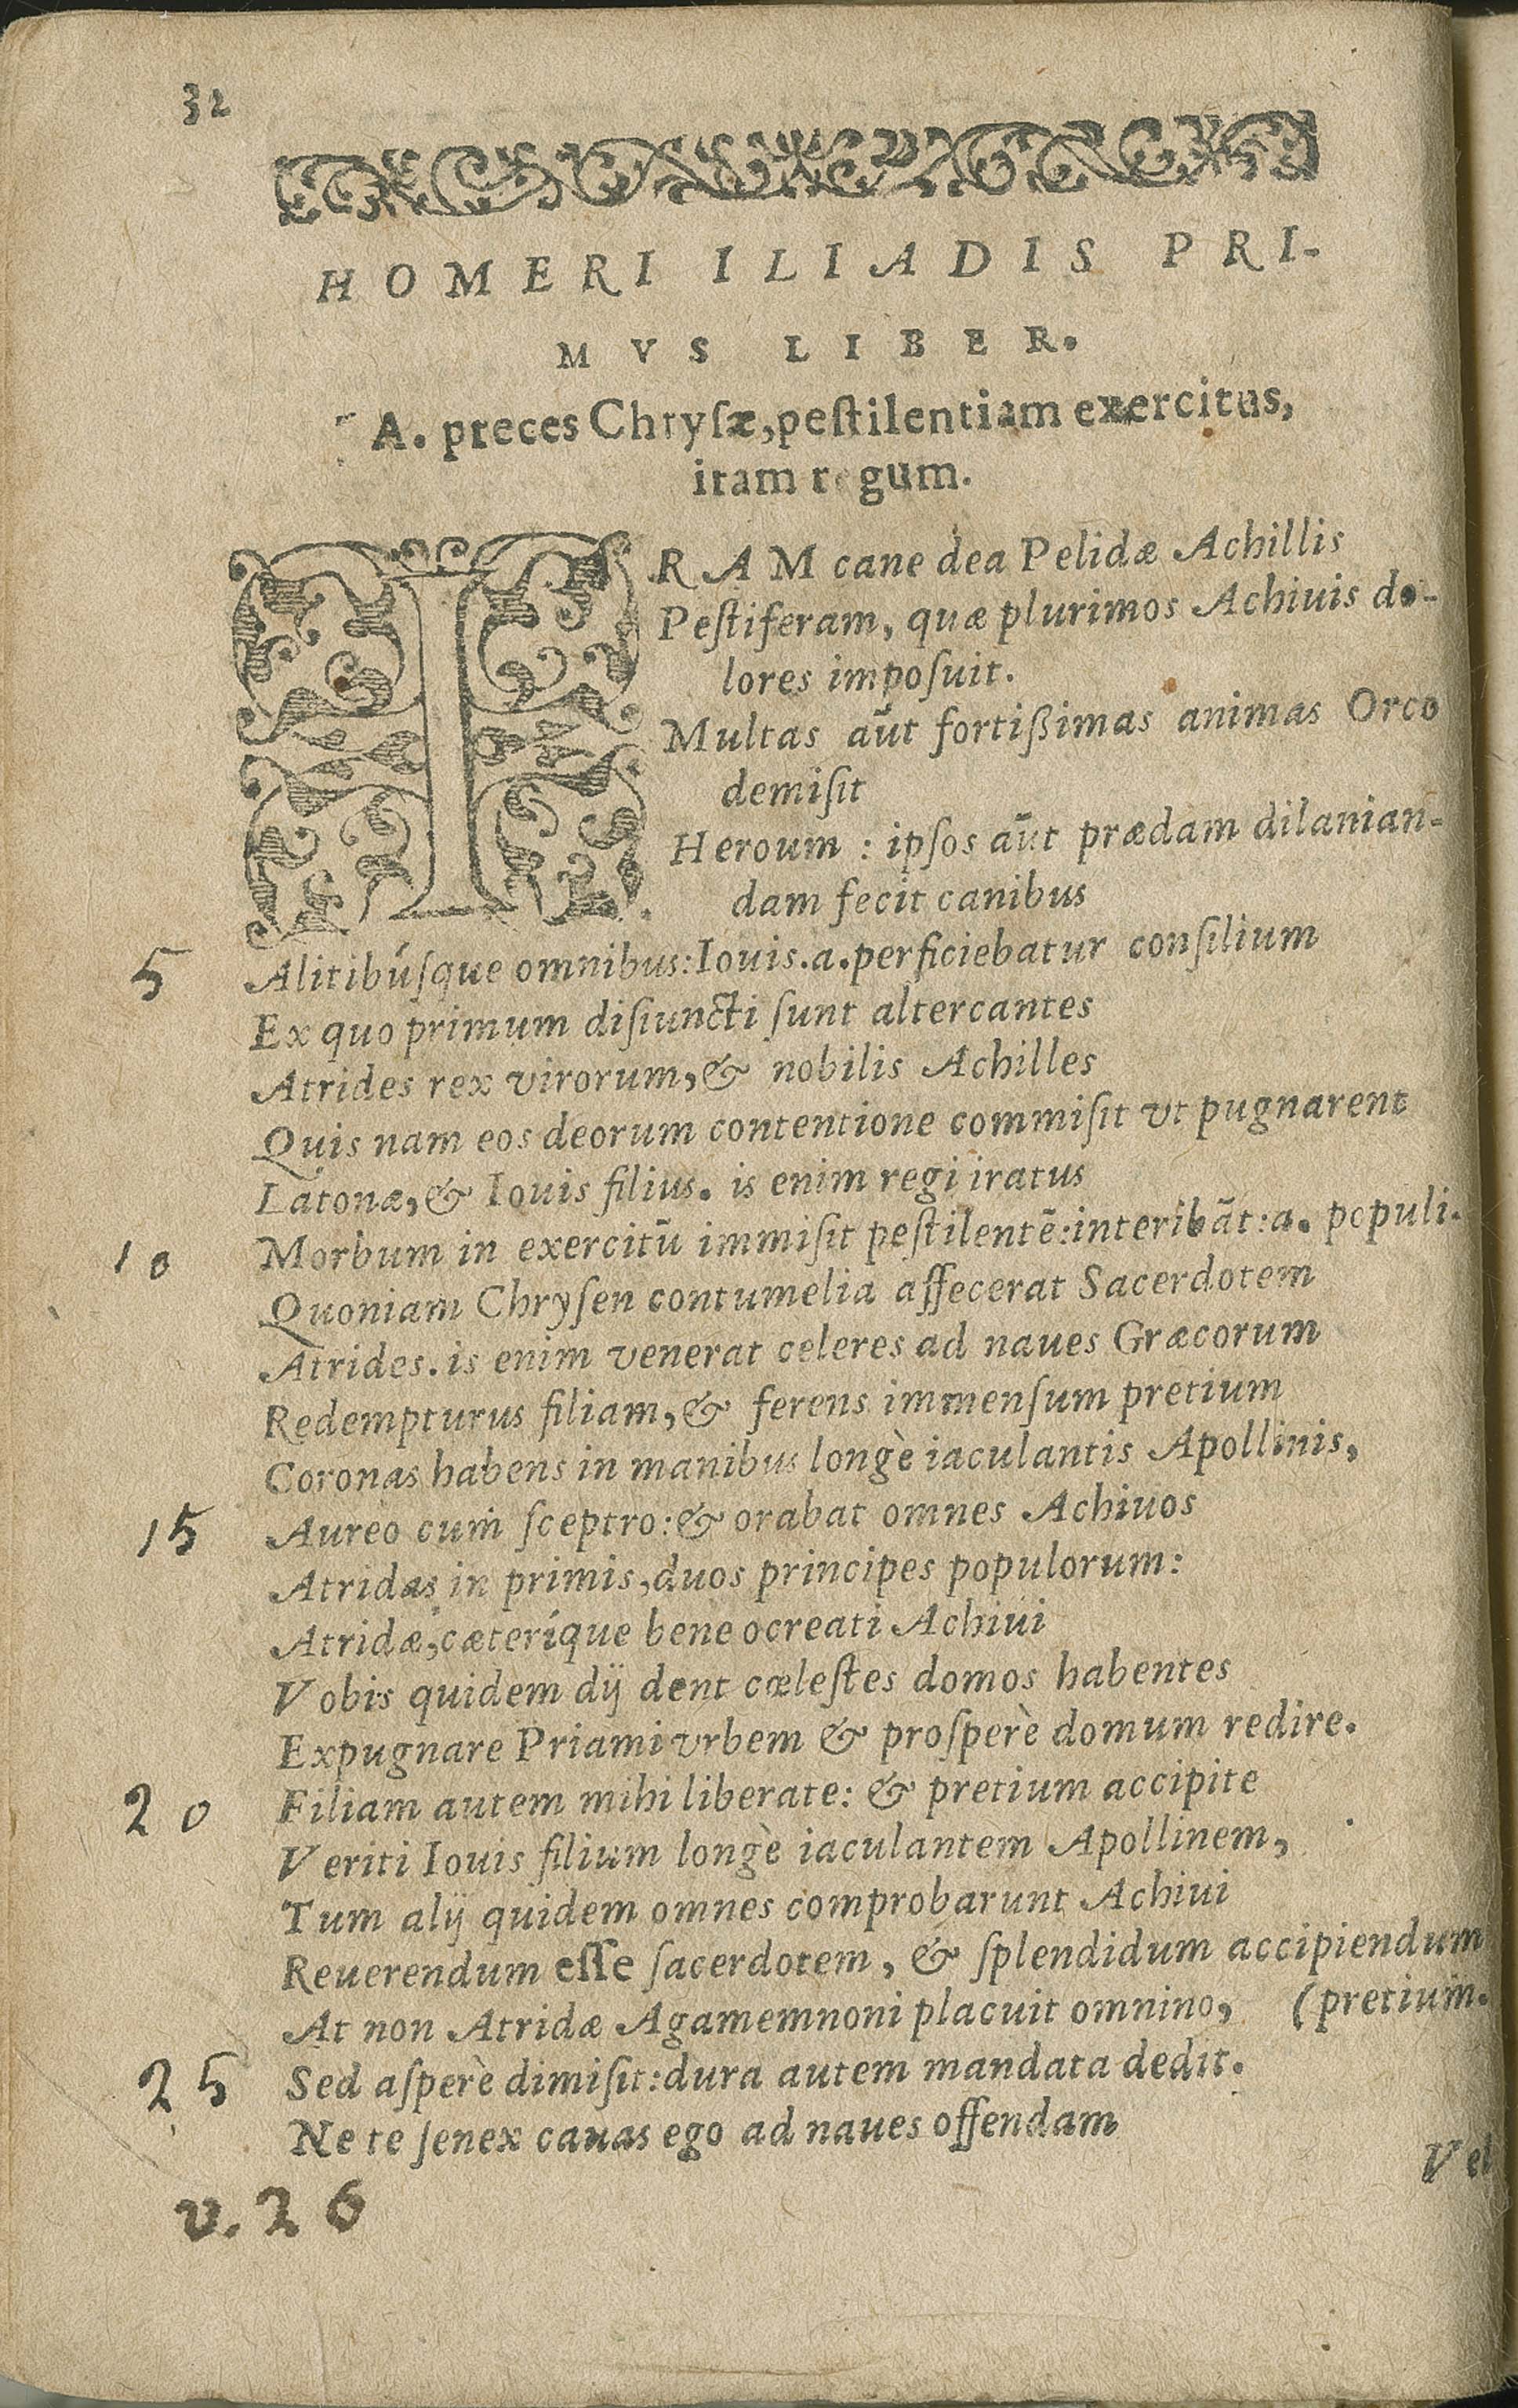 32
HOMERI ILIADIS PRI-
MVS LIBER.
A. preces Chryſæ, peſtilentiam exercitus,
iram regum.
IRAM cane dea Pelidæ Achillis
Peſtiferam, quæ plurimos Achiuis do-
lores impoſuit.
Multas aūt fortißimas animas Orco
demiſit
Heroum : ipſos aūt prædam dilanian-
dam fecit canibus
5 Alitibúſque omnibus: Iouis .a. perficiebatur conſilium
Ex quo primum diſiuncti ſunt altercantes
Atrides rex virorum, & nobilis Achilles
Quis nam eos deorum contentione commiſit vt pugnarent
Latonæ, & Iouis filius. is enim regi iratus
10 Morbum in exercitū immiſit peſtilentē: interibāt: a. populi.
Quoniam Chryſen contumelia affecerat Sacerdotem
Atrides. is enim venerat celeres ad naues Græcorum
Redempturus filiam, & ferens immenſum pretium
Coronas habens in manibus longè iaculantis Apollinis,
15 Aureo cum ſceptro: & orabat omnes Achiuos
Atridas in primis, duos principes populorum:
Atridæ, cæteríque bene ocreati Achiui
Vobis quidem dij dent cœleſtes domos habentes
Expugnare Priami vrbem & proſperè domum redire.
20 Filiam autem mihi liberate: & pretium accipite
Veriti Iouis filium longè iaculantem Apollinem,
Tum alij quidem omnes comprobarunt Achiui
Reuerendum eſſe ſacerdotem, & ſplendidum accipiendum
At non Atridæ Agamemnoni placuit omnino, (pretium.
25 Sed aſperè dimiſit: dura autem mandata dedit.
Ne te ſenex cauas ego ad naues offendam
Vel
v. 26